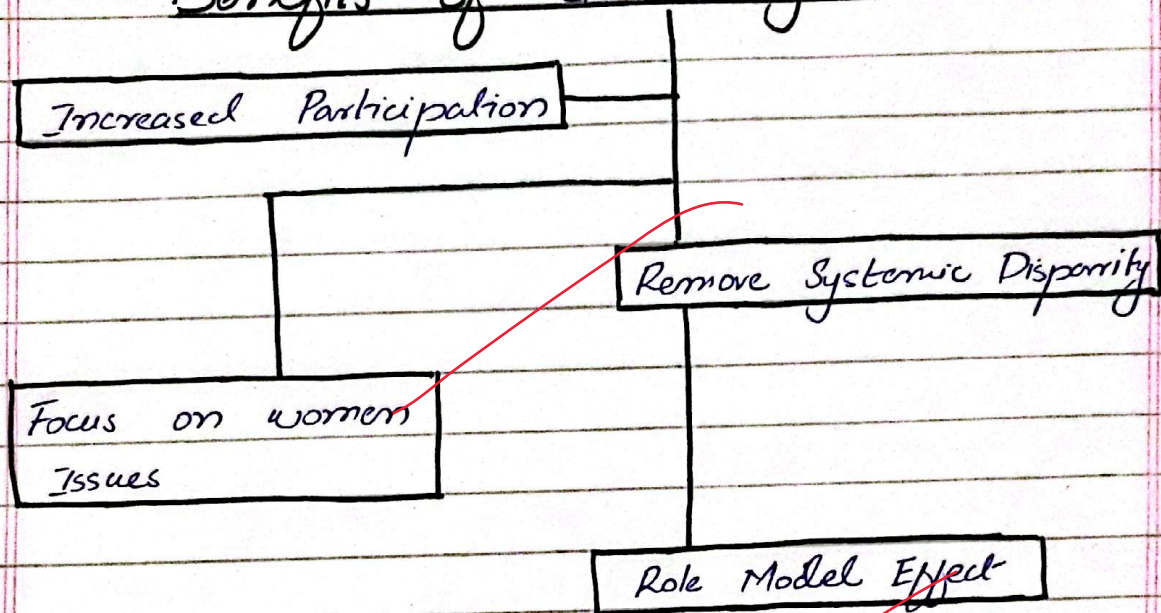 Benefits of
Increased Participation
Remove Systemic Disparrity
Focus on women
Issues
Role Model Effect